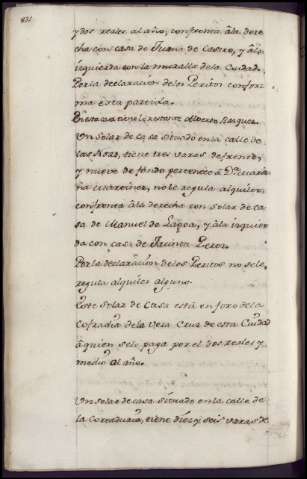 y dos reales al año, confronta âla dere
cha con casa de Juana de Castro, y âla
izquierda con la muralla de la Ciudad.
Por la declaracion delos Peritos confor
ma esta partida.
Un solar de casa situado enla calle de
las tiene tres varas de frente,
y nueve de fondo pertenece â
no le regula alquiler,
confronta âla derecha con solar de ca
sa de Manuel de Lagoa, y âla izquier
da con casa de Jacinta Perez.
Por la declaracion delos Peritos no sele
regula alquiler alguno.
Este solar de Casa está en foro dela
Cofradia dela Vera Cruz de esta Ciudad
â quien se le paga por el dos reales y
medio al año.
Un solar de casa situado enla calle de
la tiene diez y seis varas de